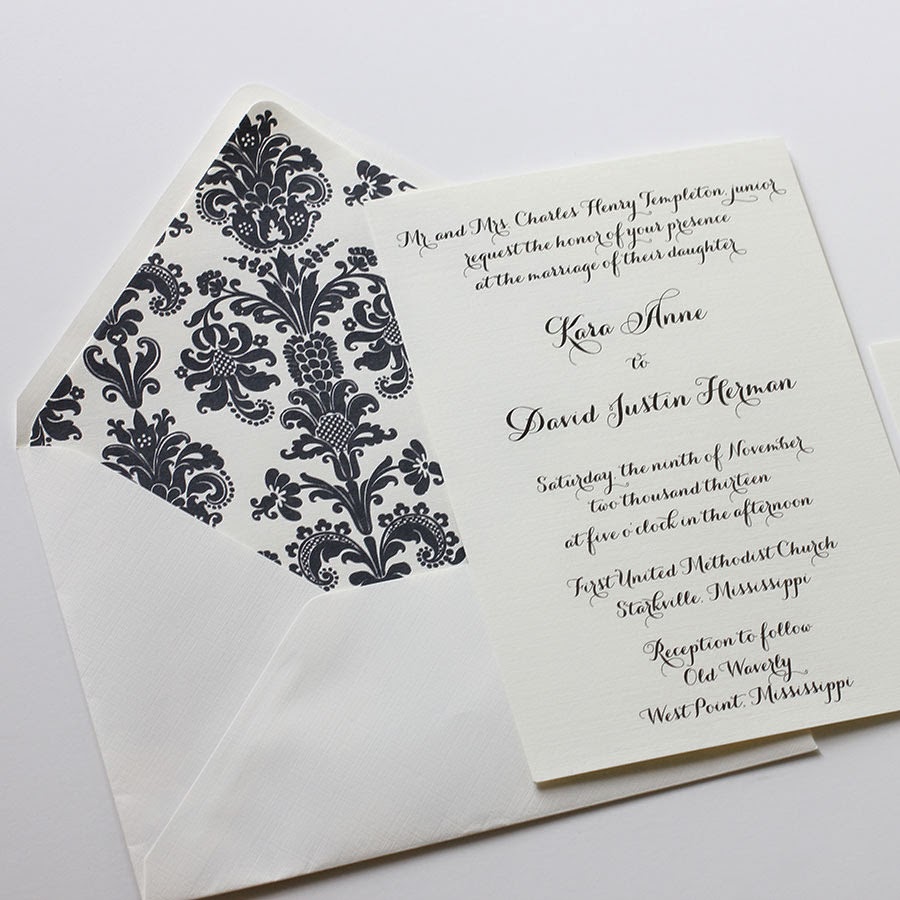 Mr. and Mrs. Charles Henry Templeton, junior
request the honor of your presence
at the marriage of their daughter
Kara Anne
to
David Justin Herman
Saturday, the ninth of November
two thousand thirteen
at five o'clock in the afternoon
First United Methodist Church
Starkville, Mississippi
Reception to follow
Old Waverly
West Point, Mississippi